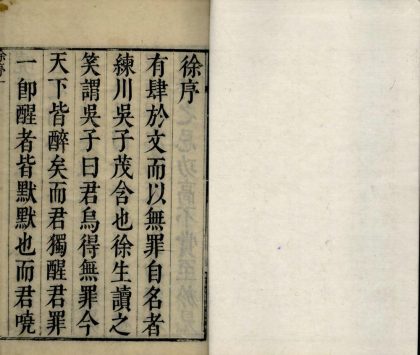 徐序
有肆於文而以無罪自名者
練川吳子茂含也徐生讀之
笑謂吳子曰君烏得無罪今
天下皆醉矣而君獨醒君罪
一即醒者皆默默也而君嘵
徐序一